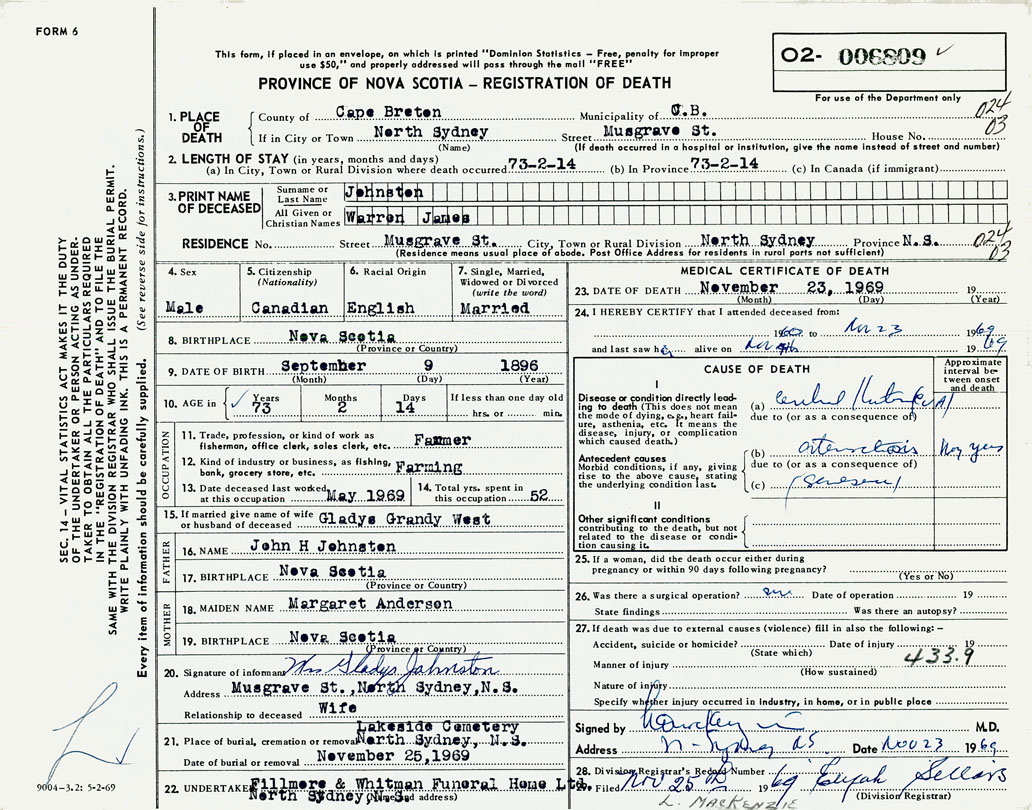 FORM 6
This form, if placed in an envelope, on which is printed "Dominion Statistics – Free, penalty for improper
use $50," and properly addressed will pass through the mail "FREE"
PROVINCE OF NOVA SCOTIA – REGISTRATION OF DEATH
O2- 006809
For use of the Department only
024
03
1. PLACE OF DEATH
County of Cape Breton Municipality of C.B.
If in City or Town North Sydney Street Musgrave St. House No.
(Name) (If death occurred in a hospital or institution, give the name instead of street and number)
2. LENGTH OF STAY (in years, months and days)
(a) In City, Town or Rural Division where death occurred 73-2-14 (b) In Province 73-2-14 (c) In Canada (if immigrant)
3. PRINT NAME OF DECEASED
Surname or Last Name Johnston
All Given or Christian Names Warren James
RESIDENCE No. Street Musgrave St. City, Town or Rural Division North Sydney Province N.S.
024
03
(Residence means usual place of abode. Post Office Address for residents in rural parts not sufficient)
4. Sex
Male
5. Citizenship
(Nationality)
Canadian
6. Racial Origin
English
7. Single, Married,
Widowed or Divorced
(write the word)
Married
8. BIRTHPLACE Nova Scotia
(Province or Country)
9. DATE OF BIRTH September 9 1896
(Month) (Day) (Year)
10. AGE in Years Months Days If less than one day old
73 2 14 hrs. or min.
OCCUPATION
11. Trade, profession, or kind of work as
fisherman, office clerk, sales clerk, etc. Farmer
12. Kind of industry or business, as fishing,
bank, grocery store, etc. Farming
13. Date deceased last worked
at this occupation May 1969
14. Total yrs. spent in
this occupation 52
15. If married give name of wife
or husband of deceased Gladys Grandy West
FATHER
16. NAME John H Johnston
17. BIRTHPLACE Nova Scotia
(Province or Country)
MOTHER
18. MAIDEN NAME Margaret Anderson
19. BIRTHPLACE Nova Scotia
(Province or Country)
20. Signature of informant Mrs Gladys Johnston
Address Musgrave St., North Sydney, N.S.
Relationship to deceased Wife
Lakeside Cemetery
21. Place of burial, cremation or removal North Sydney, N.S.
Date of burial or removal November 25, 1969
22. UNDERTAKER Fillmore & Whitman Funeral Home Ltd.
North Sydney, N.S.
(Name and address)
MEDICAL CERTIFICATE OF DEATH
23. DATE OF DEATH November 23, 1969 19
(Month) (Day) (Year)
24. I HEREBY CERTIFY that I attended deceased from:
19 to Nov 23 1969
and last saw h alive on Nov 19 69
CAUSE OF DEATH
Approximate
interval be-
tween onset
and death
I
Disease or condition directly lead-
ing to death (This does not mean
the mode of dying, e.g., heart fail-
ure, asthenia, etc. It means the
disease, injury, or complication
which caused death.)
(a)
due to (or as a consequence of)
Antecedent causes
Morbid conditions, if any, giving
rise to the above cause, stating
the underlying condition last.
(b)
due to (or as a consequence of)
(c)
II
Other significant conditions
contributing to the death, but not
related to the disease or condi-
tion causing it.
25. If a woman, did the death occur either during
pregnancy or within 90 days following pregnancy?
(Yes or No)
26. Was there a surgical operation? Date of operation 19
State findings Was there an autopsy?
27. If death was due to external causes (violence) fill in also the following: –
Accident, suicide or homicide? Date of injury 19
(State which)
433.9
Manner of injury
(How sustained)
Nature of injury
Specify whether injury occurred in industry, in home, or in public place
Signed by M.D.
Address N-Sydney NS Date Nov 23 1969
28. Division Registrar's Record Number
29. Filed Nov 25th 1969 Elijah Sellars
(Division Registrar)
L. MACKENZIE
SEC. 14 – VITAL STATISTICS ACT MAKES IT THE DUTY
OF THE UNDERTAKER OR PERSON ACTING AS UNDER-
TAKER TO OBTAIN ALL THE PARTICULARS REQUIRED
IN THE "REGISTRATION OF DEATH" AND TO FILE THE
SAME WITH THE DIVISION REGISTRAR WHO SHALL ISSUE THE BURIAL PERMIT.
WRITE PLAINLY WITH UNFADING INK. THIS IS A PERMANENT RECORD.
Every item of information should be carefully supplied. (See reverse side for instructions.)
9004–3.2: 5-2-69